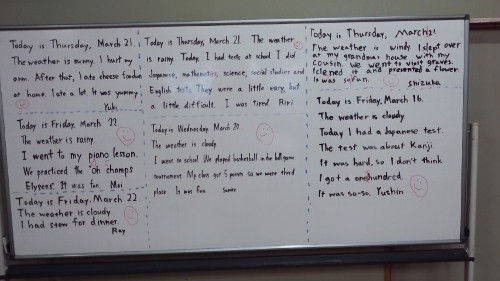 Today is Thursday, March 21.
The weather is sunny. I hurt my
arm. After that, I ate cheese fondue
at home. I ate a lot. It was yummy!
Yuki
Today is Friday, March 22.
The weather is rainy.
I went to my piano lesson.
We practiced the "oh champs
Elysees. It was fun. Mai
Today is Friday, March 22
The weather is cloudy
I had stew for dinner.
Ray
Today is Thursday, March 21. The weather
is rainy. Today, I had tests at school. I did
Japanese, mathematics, science, social studies and
English tests. They were a little easy, but
a little difficult. I was tired. Riri
Today is Wednesday, March 20.
The weather is cloudy.
I went to school. We played basketball in the ball game
tournament. My class got 5 points so we were third
place. It was fun.
Today is Thursday, March 21
The weather is windy. I slept over
at my grandmas house with my
cousin. We went to visit graves.
I clened it and presented a flower.
It was so fun.
Shizuka
Today is Friday, March 16.
The weather is cloudy.
Today I had a Japanese test.
The test was about Kanji.
It was hard, so I don't think
I got a onehundred.
It was so-so. Yushin